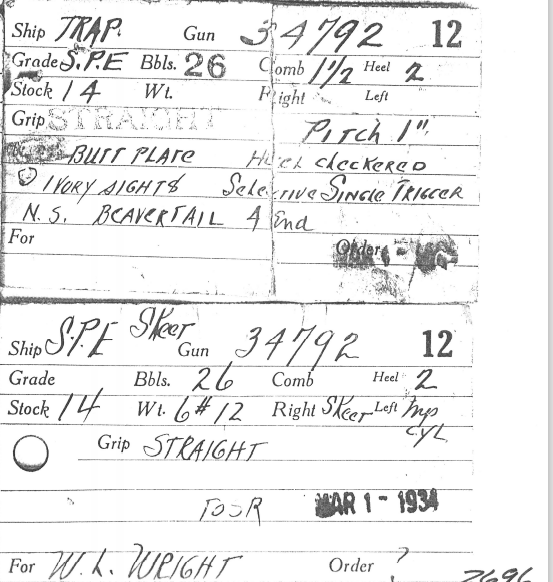 Ship TRAP. Gun 34792 12
Grade S.P.E Bbls. 26 Comb 1 1/2 Heel 2
Stock 14 Wt. Right Left
Grip STRAIGHT PITCH 1"
BUTT PLATE Heel checkered
IVORY SIGHTS Selective SINGLE TRIGGER
N.S. BEAVERTAIL 4 End
For Order
Ship S.P.E SKeet Gun 34792 12
Grade Bbls. 26 Comb Heel 2
Stock 14 Wt. 6# 12 Right SKeeT Left Imp CYL
Grip STRAIGHT
MAR 1 - 1934
For W. L. WRIGHT Order ?